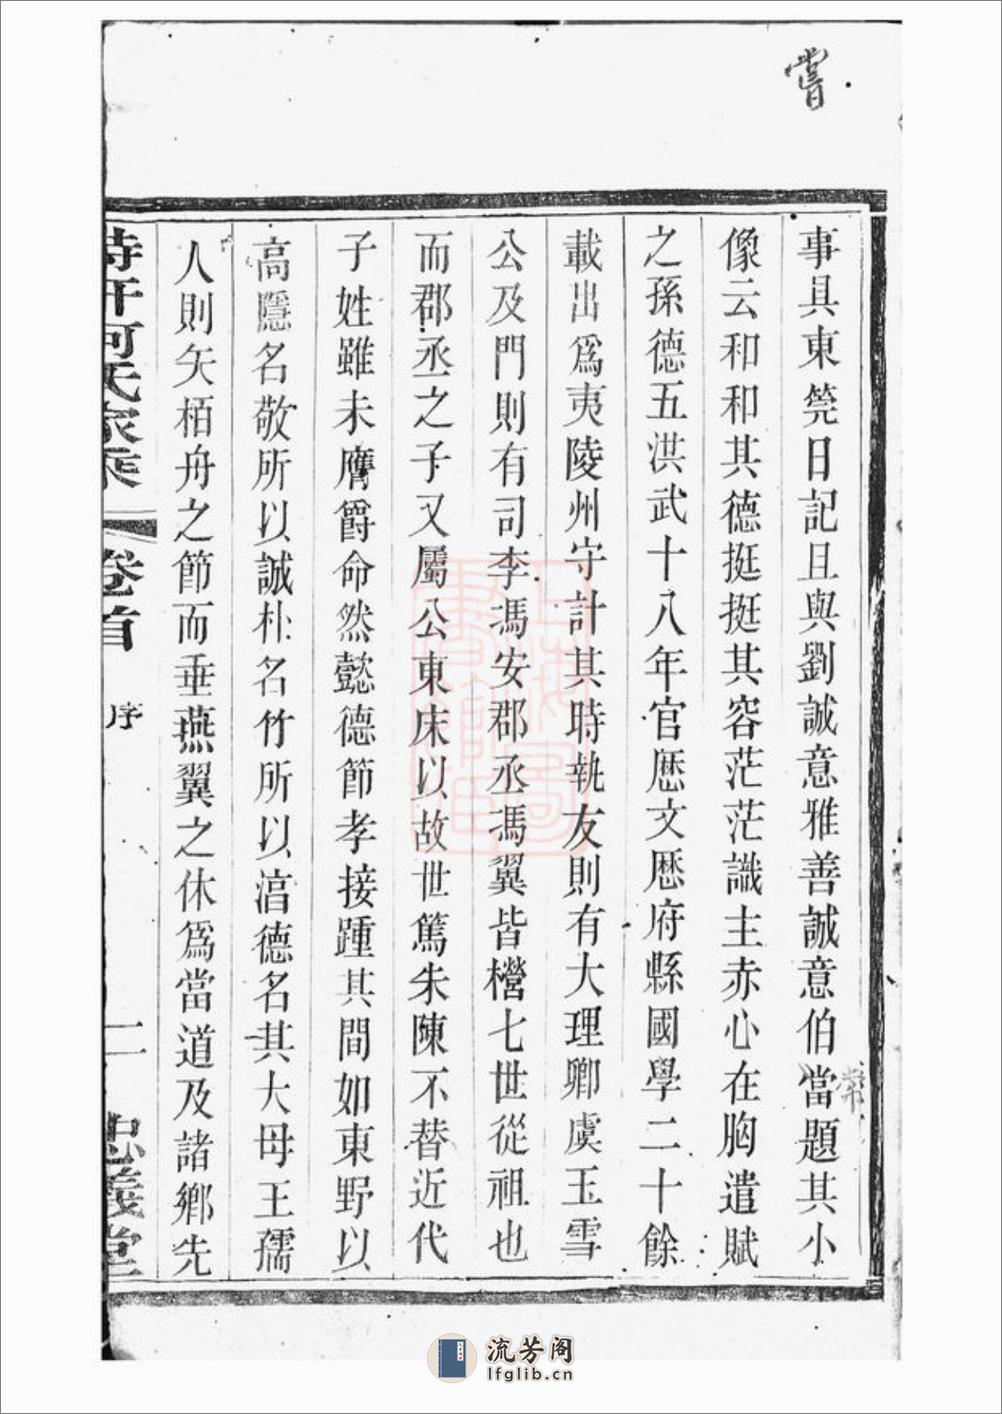 嘗
事具東筦日記且與劉誠意雅善誠意伯當題其小
常
像云和和其德挺挺其容茫茫識主赤心在胸遣賦
之孫德五洪武十八年官歷文歷府縣國學二十餘
載出爲夷陵州守計其時執友則有大理卿虞玉雪
公及門則有司李馮安郡丞馮翼皆櫿七世從祖也
而郡丞之子又屬公東床以故世篤朱陳不替近代
子姓雖未膺爵命然懿德節孝接踵其間如東野以
高隱名敬所以誠朴名竹所以涫德名其大母王孺
人則矢栢舟之節而垂燕翼之休爲當道及諸鄉先
何氏家乘 卷首 序 二 忠義堂
上海圖書館藏
流芳阁
lfglib.cn